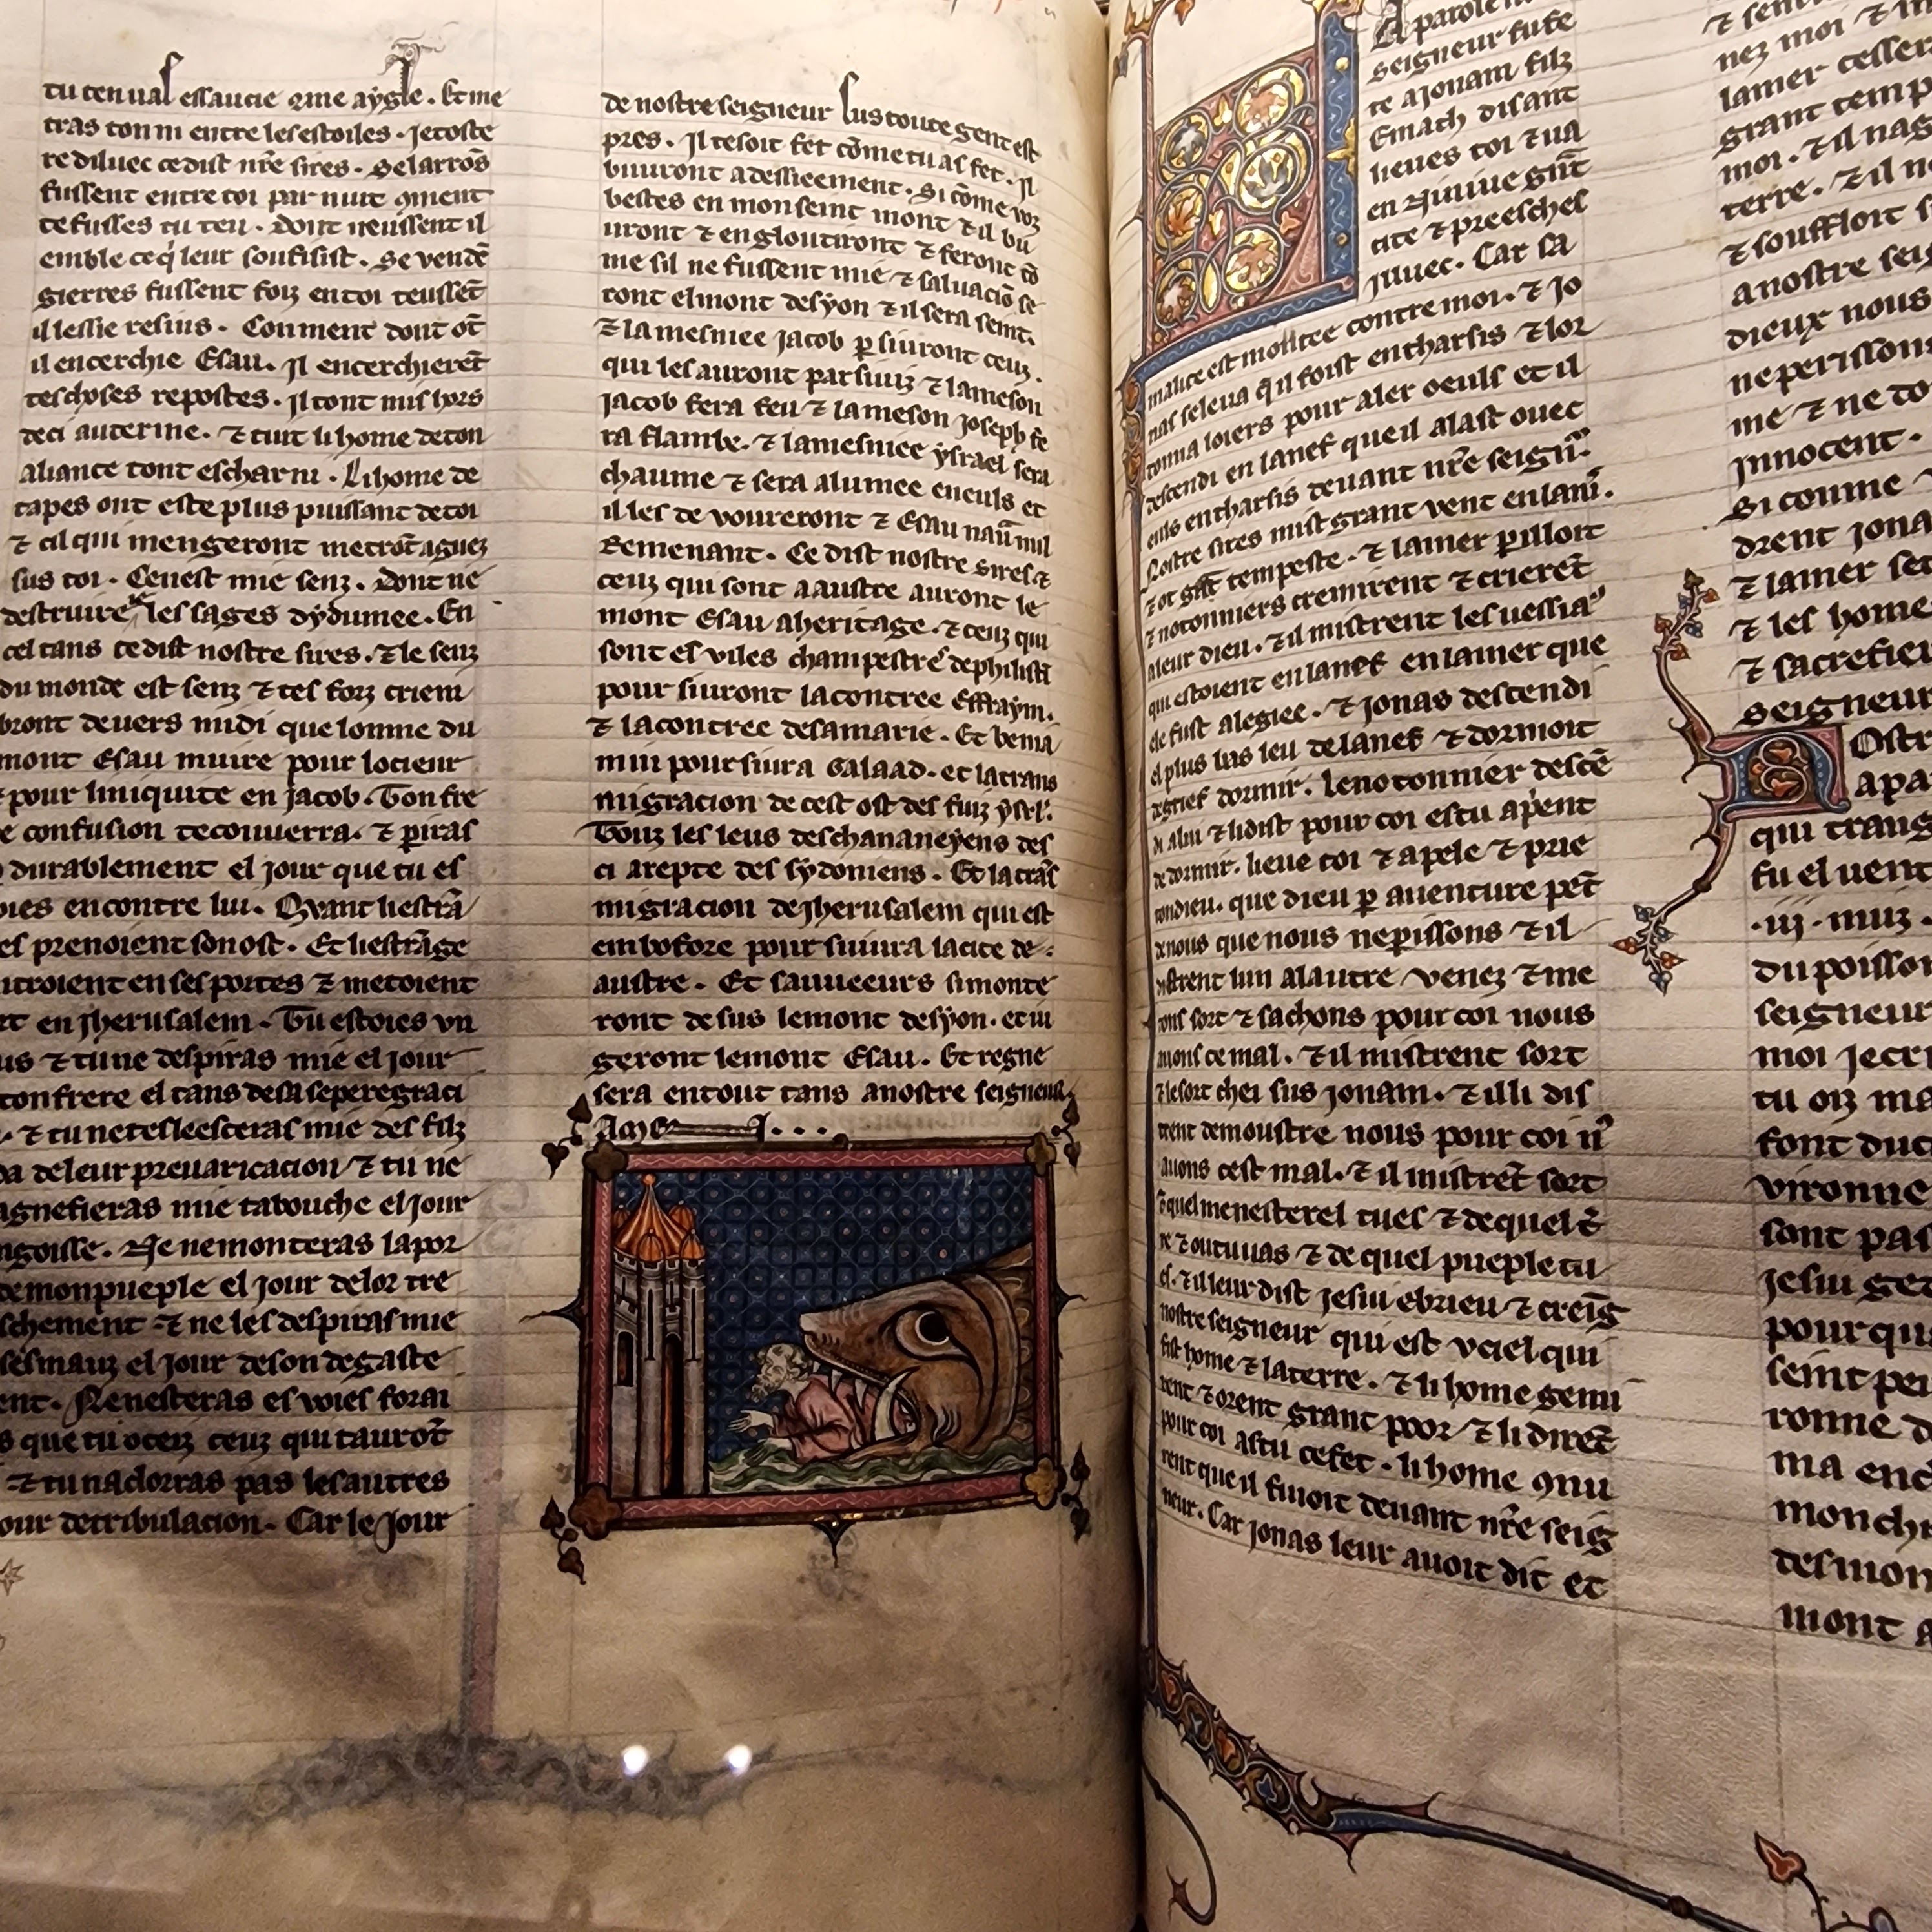 tu ten vas essaucie 9me aygle. Et me
tras ton ni entre les estoiles. Je toste
re diluec ce dist nr̄e sires. Se larrōs
fussent entre toi par nuit 9ment
te fusses tu teu. Dont neussent il
emble ceq̇ leur soufisist. Se vendē
gierres fussent foiz en toi teussēt
il lessie resins. Conment dont ōt
il encerchie Esau. Il encerchierēt
tes choses repostes. Il tont mis hors
de ci au terme. ⁊ tuit li home de ton
aliance tont escharni. Li home de
ta pes ont este plus puissant de toi
⁊ cil qui mengeront
sus toi. Ce nest mie senz. Dont ne
destruire les sages dydumee. En
cel tans ce dist nostre sires. ⁊ le senz
du monde est senz ⁊ tes forz criem
bront devers midi que lomme du
mont Esau muire pour locieur
⁊ pour liniquite en Jacob. Ton fre
e confusion te couuerra. ⁊ p̱iras
durablement el jour que tu es
encontre lui. Qvant li estrā
prenoient son ost. Et li estrāge
en ses portes ⁊ metoient
rt en Jherusalem. Tu estoies vn
us ⁊ tu ne despiras mie el jour
ton frere el tans de sa seperegraci
⁊ tu ne tesleesceras mie des filz
da de leur preuaricacion ⁊ tu ne
agnefieras mie ta bouche el jour
ngoisse. Ne ne monteras la por
demon pueple el jour de lor tre
schement ⁊ ne les despiras mie
ses mauz el jour de son degaste
ent. Ne nesteras es voies forai
s que tu ociez ceuz qui taurōt
⁊ tu nadorras pas les autres
our de tribulacion. Car le jour
de nostre seigneur sus toute gent est
pres. Il te soit fet cōme tu as fet. Il
buuront a dessieement. Si cōme voz
bestes en mon seint mont ⁊ il bu
uront ⁊ engloutiront ⁊ feront cō
me sil ne fussent mie ⁊ saluaciō se
ront el mont de syon ⁊ il sera seint.
⁊ la mesniee Jacob p̱ siuront ceuz.
qui les auront parsiuiz ⁊ la meson
Jacob sera feu ⁊ la meson Joseph se
ra flambe. ⁊ la mesniee ysrael sera
chaume ⁊ sera alumee en euls et
il les devoureront ⁊ Esau naū nul
Remenant. Ce dist nostre sires ⁊
ceuz qui sont a austre auront le
mont Esau a heritage. ⁊ ceuz qui
sont es viles champestres de philisti
pour siuront la contree Effraym.
⁊ la contree de samarie. Et benia
min poursiura Galaad. et la trans
migracion de cest ost des fiuz ysrl'.
Touz les leus des chananeyens des
ci a repte des sydoniens. Et la trās
migracion de Jherusalem qui est
em bosfore poursiuura la cite de
austre. Et sauueeurs simonte
ront desus le mont de syon. et iu
geront le mont Esau. Et regne
sera en tout tans a nostre seigneur
Amen
A parole
seigneur fu fe
te a Jonam filz
Emath disant
lieues toi ⁊ ua
en Niniue gn̄t
cite ⁊ preesches
Jluec. Car sa
malice est montee contre moi. ⁊ Jo
nas se leua q̄ il foist en tharsis ⁊ lor
donna loiers pour aler o euls et il
descendi en la nef que il alast ouec
euls en tharsis deuant nr̄e seign̄r
Nostre sires mist grant vent en la mer.
⁊ ot gn̄t tempeste. ⁊ la mer p̱illoit
⁊ notonniers cremirent ⁊ crierēt
a leur dieu. ⁊ il mistrent les uessiax
qui estoient en la nef en la mer que
ele fust alegiee. ⁊ Jonas descendi
el plus bas leu de la nef ⁊ dormoit
de grief dormir. Le notonnier descē
di a lui ⁊ li dist pour coi es tu ap̱ent
de dormir. lieue toi ⁊ apele ⁊ prie
ton dieu. que dieu p̱ auenture pēt
de nous que nous ne p̱issons ⁊ il
distrent lun a lautre venez ⁊ me
tons sort ⁊ sachons pour coi nous
auons ce mal. ⁊ il mistrent sort
⁊ le sort chei sus Jonam. ⁊ il li dis
trent demoustre nous pour coi n9
auons cest mal. ⁊ il mistrēt sort
quel menesterel tu es ⁊ de quel t̄
re ⁊ ou tu uas ⁊ de quel pueple tu
es. ⁊ il leur dist Je sui ebrieu ⁊ creīg
nostre seigneur qui est v ciel qui
fist home ⁊ la terre. ⁊ li home gemi
rent ⁊ orent grant poor ⁊ li dirēt
pour coi as tu ce fet. li home 9nu
rent que il fuioit deuant nr̄e seig
neur. Car Jonas leur auoit dit et
nez moi ⁊
lamer cesser
grant temp
moi. ⁊ il nag
terre. ⁊ il n
⁊ souffloit s
a nostre sei
dieux nous
ne perissons
me ⁊ ne do
Innocent.
Si comme
drent Jona
⁊ la mer
⁊ les home
⁊ sacrefier
seigneur
Nostr
apa
qui trans
fu el uent
.iij. nuiz
du poisson
seigneur
moi Je cri
tu oiz ma
font du c
vironne
sont pas
Je sui ge
pourqu
seint
ronne
ma enc
mon ch
des mon
mont a